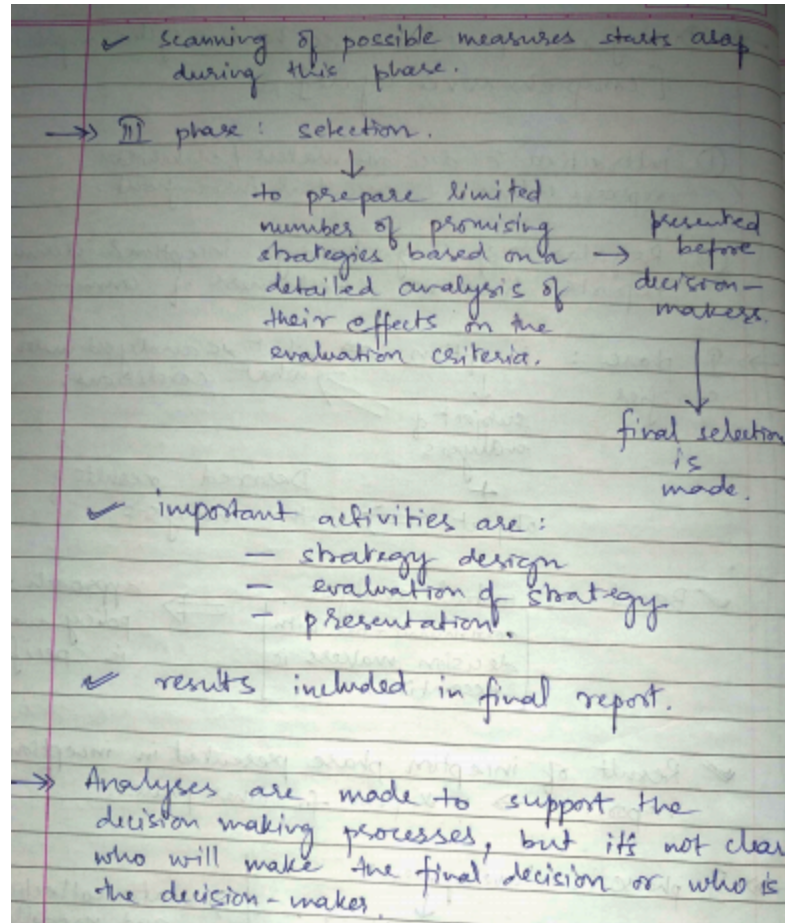 ✓ scanning of possible measures starts asap
during this phase.
→» III phase: selection.
↓
to prepare limited
number of promising
strategies based on a → presented
detailed analysis of before
their effects on the decision-
evaluation criteria. makers.
↓
final selection
is
made.
✓ important activities are:
— strategy design
— evaluation of strategy
— presentation.
✓ results included in final report.
→» Analyses are made to support the
decision making processes, but it's not clear
who will make the final decision or who is
the decision-maker.